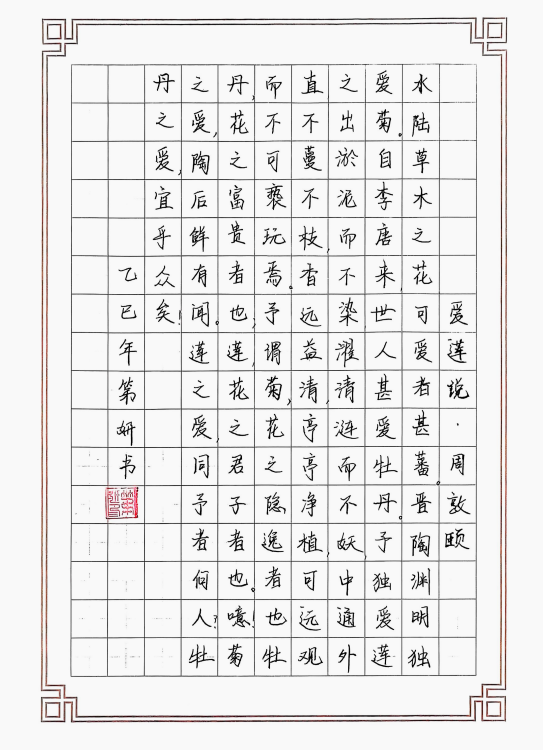 爱莲说·周敦颐
水陆草木之花,可爱者甚蕃。晋陶渊明独
爱菊。自李唐来,世人甚爱牡丹。予独爱莲
之出淤泥而不染,濯清涟而不妖,中通外
直不蔓不枝,香远益清,亭亭净植,可远观
而不可亵玩焉。予谓菊,花之隐逸者也牡
丹,花之富贵者也;莲,花之君子者也。噫!菊
之爱,陶后鲜有闻。莲之爱,同予者何人?牡
丹之爱,宜乎众矣!
乙巳年第妍书